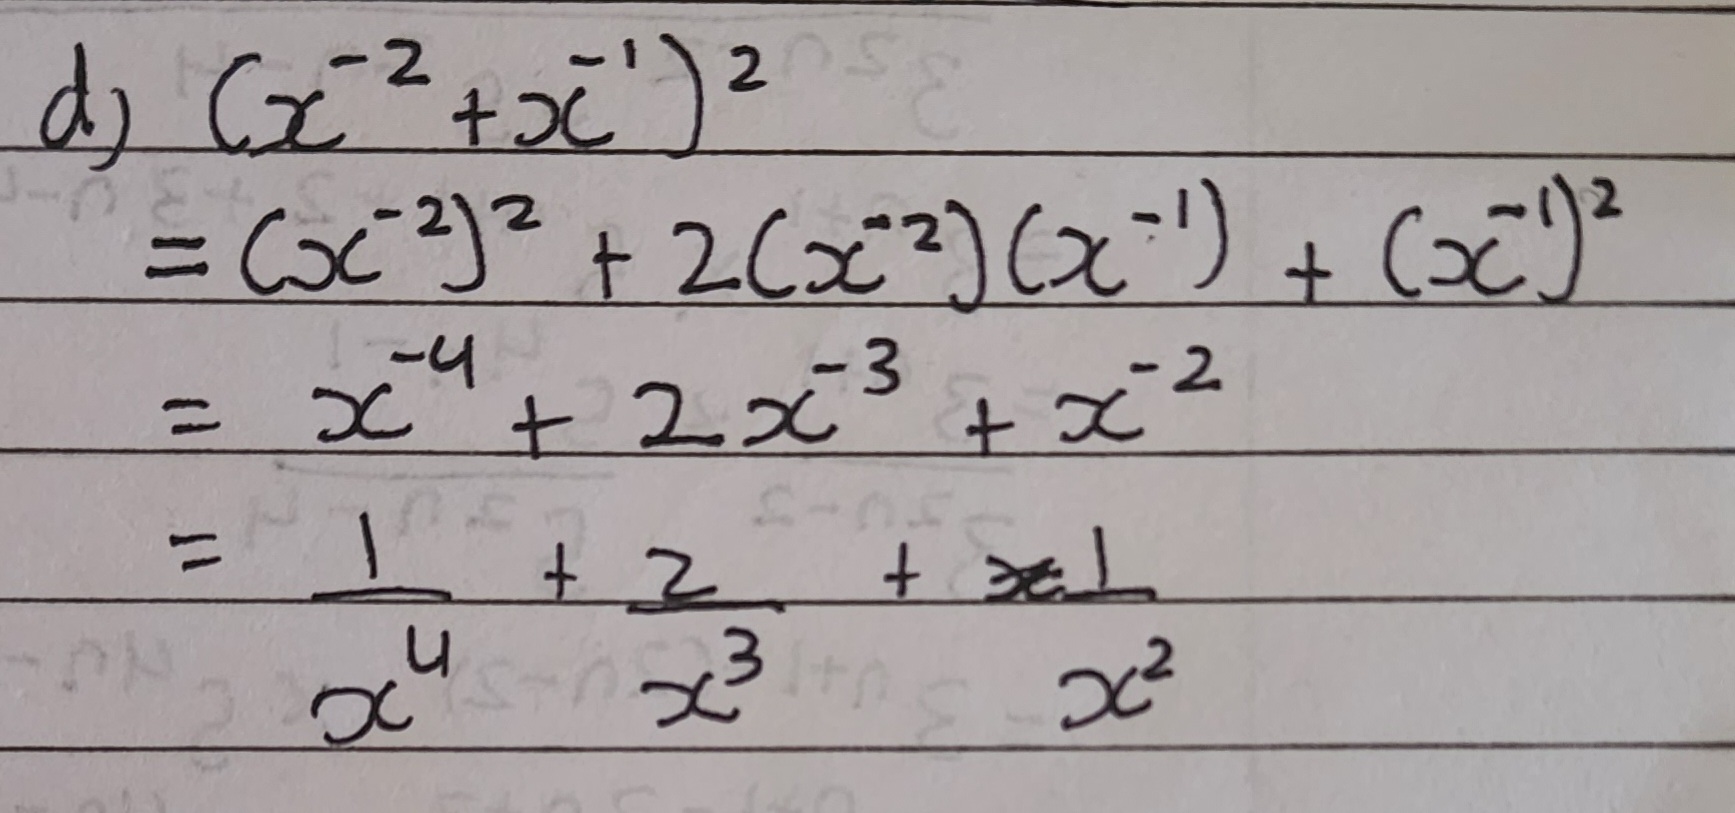 d) (x⁻² + x⁻¹)²
= (x⁻²)² + 2(x⁻²)(x⁻¹) + (x⁻¹)²
= x⁻⁴ + 2x⁻³ + x⁻²
= 1/x⁴ + 2/x³ + 1/x²